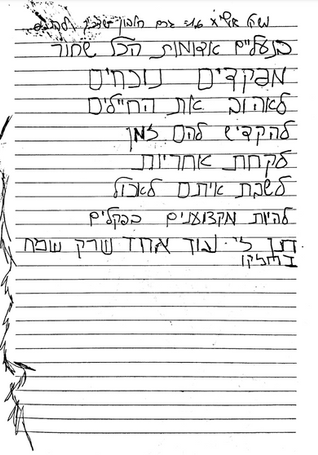 נעליים אדומות הכל שחור
מפקדים נוכחים
לאהוב את החיילים
להקדיש להם זמן
לקחת אחריות
לשבת איתם לאכול
להיות מקצוענים בפקלים
תן לי עוד אחד שרק שמח
בחלקו